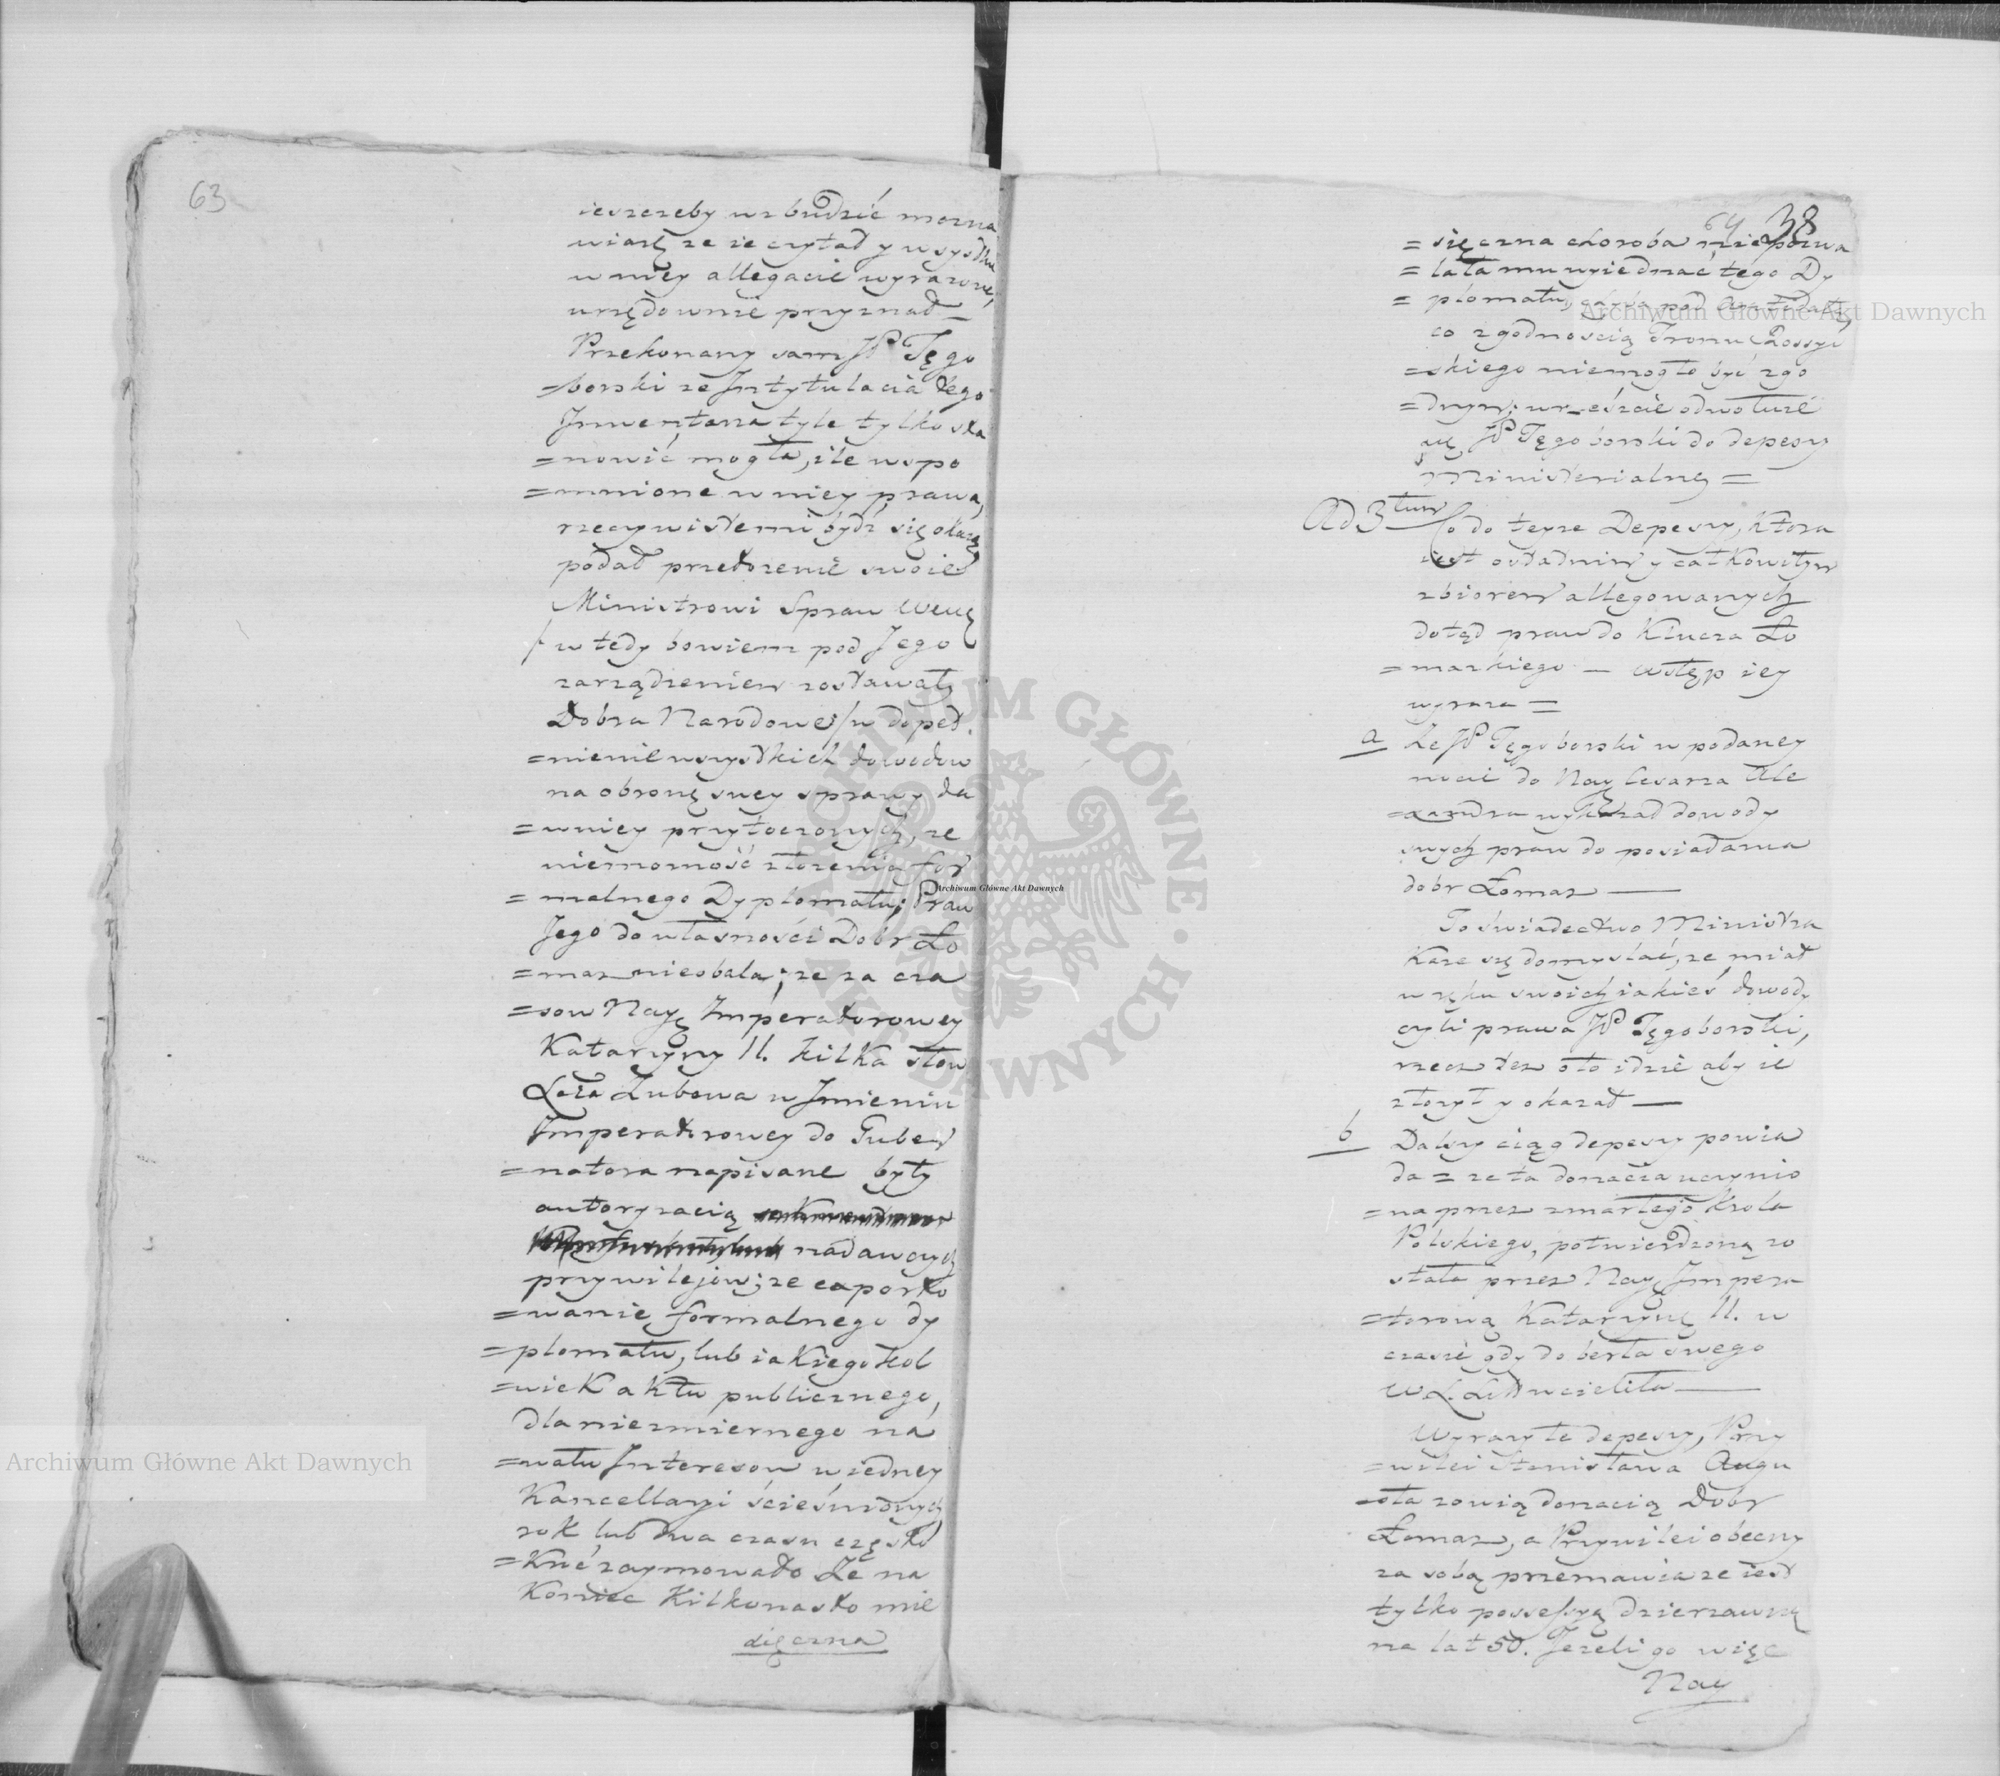 63
ieszczeby wzbudzić mozna
wiarę ze ie czytał y wszystkie
w niey allegacie wyrazone,
urzędownie przyznał —
Przekonany sam JP Tęgo
=borski ze Intytulacia tego
Inwentarza tyle tylko sta
=nowić mogła, ile wspo
=mnione w niey prawa,
rzeczywistemi bydź się okażą,
podał przełozenie swoie
Ministrowi Spraw Wewę
/w tedy bowiem pod Jego
zarządzeniem zostawały
Dobra Narodowe/ w dopeł
=nienie wszystkich dowodow
na obronę swey sprawy da
=wniey przytoczonych, ze
niemomość złozenia for
=malnego Dyplomatu, Praw
Jego do własności Dobr Ło
=maz nieobala; ze za cza
=sow Nayę Imperatorowey
Katarzyny II. kilka słow
Lota Zubowa w Imieniu
Imperatorowey do Guber
=natora napisane były
autoryzacią
nadawczych
przywilejow; ze exporto
=wanie formalnego dy
=plomatu, lub iakiegokol
=wiek aktu publicznego,
dla niezmiernego na
=wału Interesow w iedney
Kancellaryi ścieśnionych
rok lub dwa czasu częsło
=kroć zaymowało Ze na
Koniec Kilkonasto mie
sięczna
64 38
=sięczna choroba niepozwa
=lała mu wyiednać tego Dy
=plomatu,
co zgodnoscią Tronu Rossyi
=skiego niemogło być zgo
=dnym; wreszcie odwołuie
się JP Tęgoborski do depeszy
Ministerialney =
Ad 3tium Co do teyze Depeszy, ktora
iest ostatnim y całkowitym
zbiorem allegowanych
dotąd praw do Klucza Ło
=mazkiego — Wstęp iey
wyraza =
a Ze JP Tęgoborski w podaney
nocie do Nay Cesarza Ale
=xandra wykład dowody
swych praw do posiadania
dobr Łomaz —
To świadectwo Ministra
Kaze się domyslać, ze miał
w ręku swoich iakieś dowody
czyli prawa JP Tęgoborski,
rzecz tez oto idzie aby ie
złozył y okazał —
b Dalszy ciąg depeszy powia
da = ze ta donacia uczynio
=na przez zmarłego Krola
Polskiego, potwierdzoną zo
stała przez Nayę Impera
=torową Katarzynę II. w
czasie gdy do berła swego
W L. Lit wcieliła —
Wyrazy te depeszy, Przy
=wilei Stanisława Augu
=sta zowią donacią Dobr
Łomaz, a Przywilei obecny
za sobą przemawia ze iest
tylko possessyą dzierzawną
na lat 50. Jezeli go więc
Nay
Archiwum Główne Akt Dawnych
Archiwum Główne Akt Dawnych
Archiwum Główne Akt Dawnych
ARCHIWUM GŁÓWNE AKT DAWNYCH